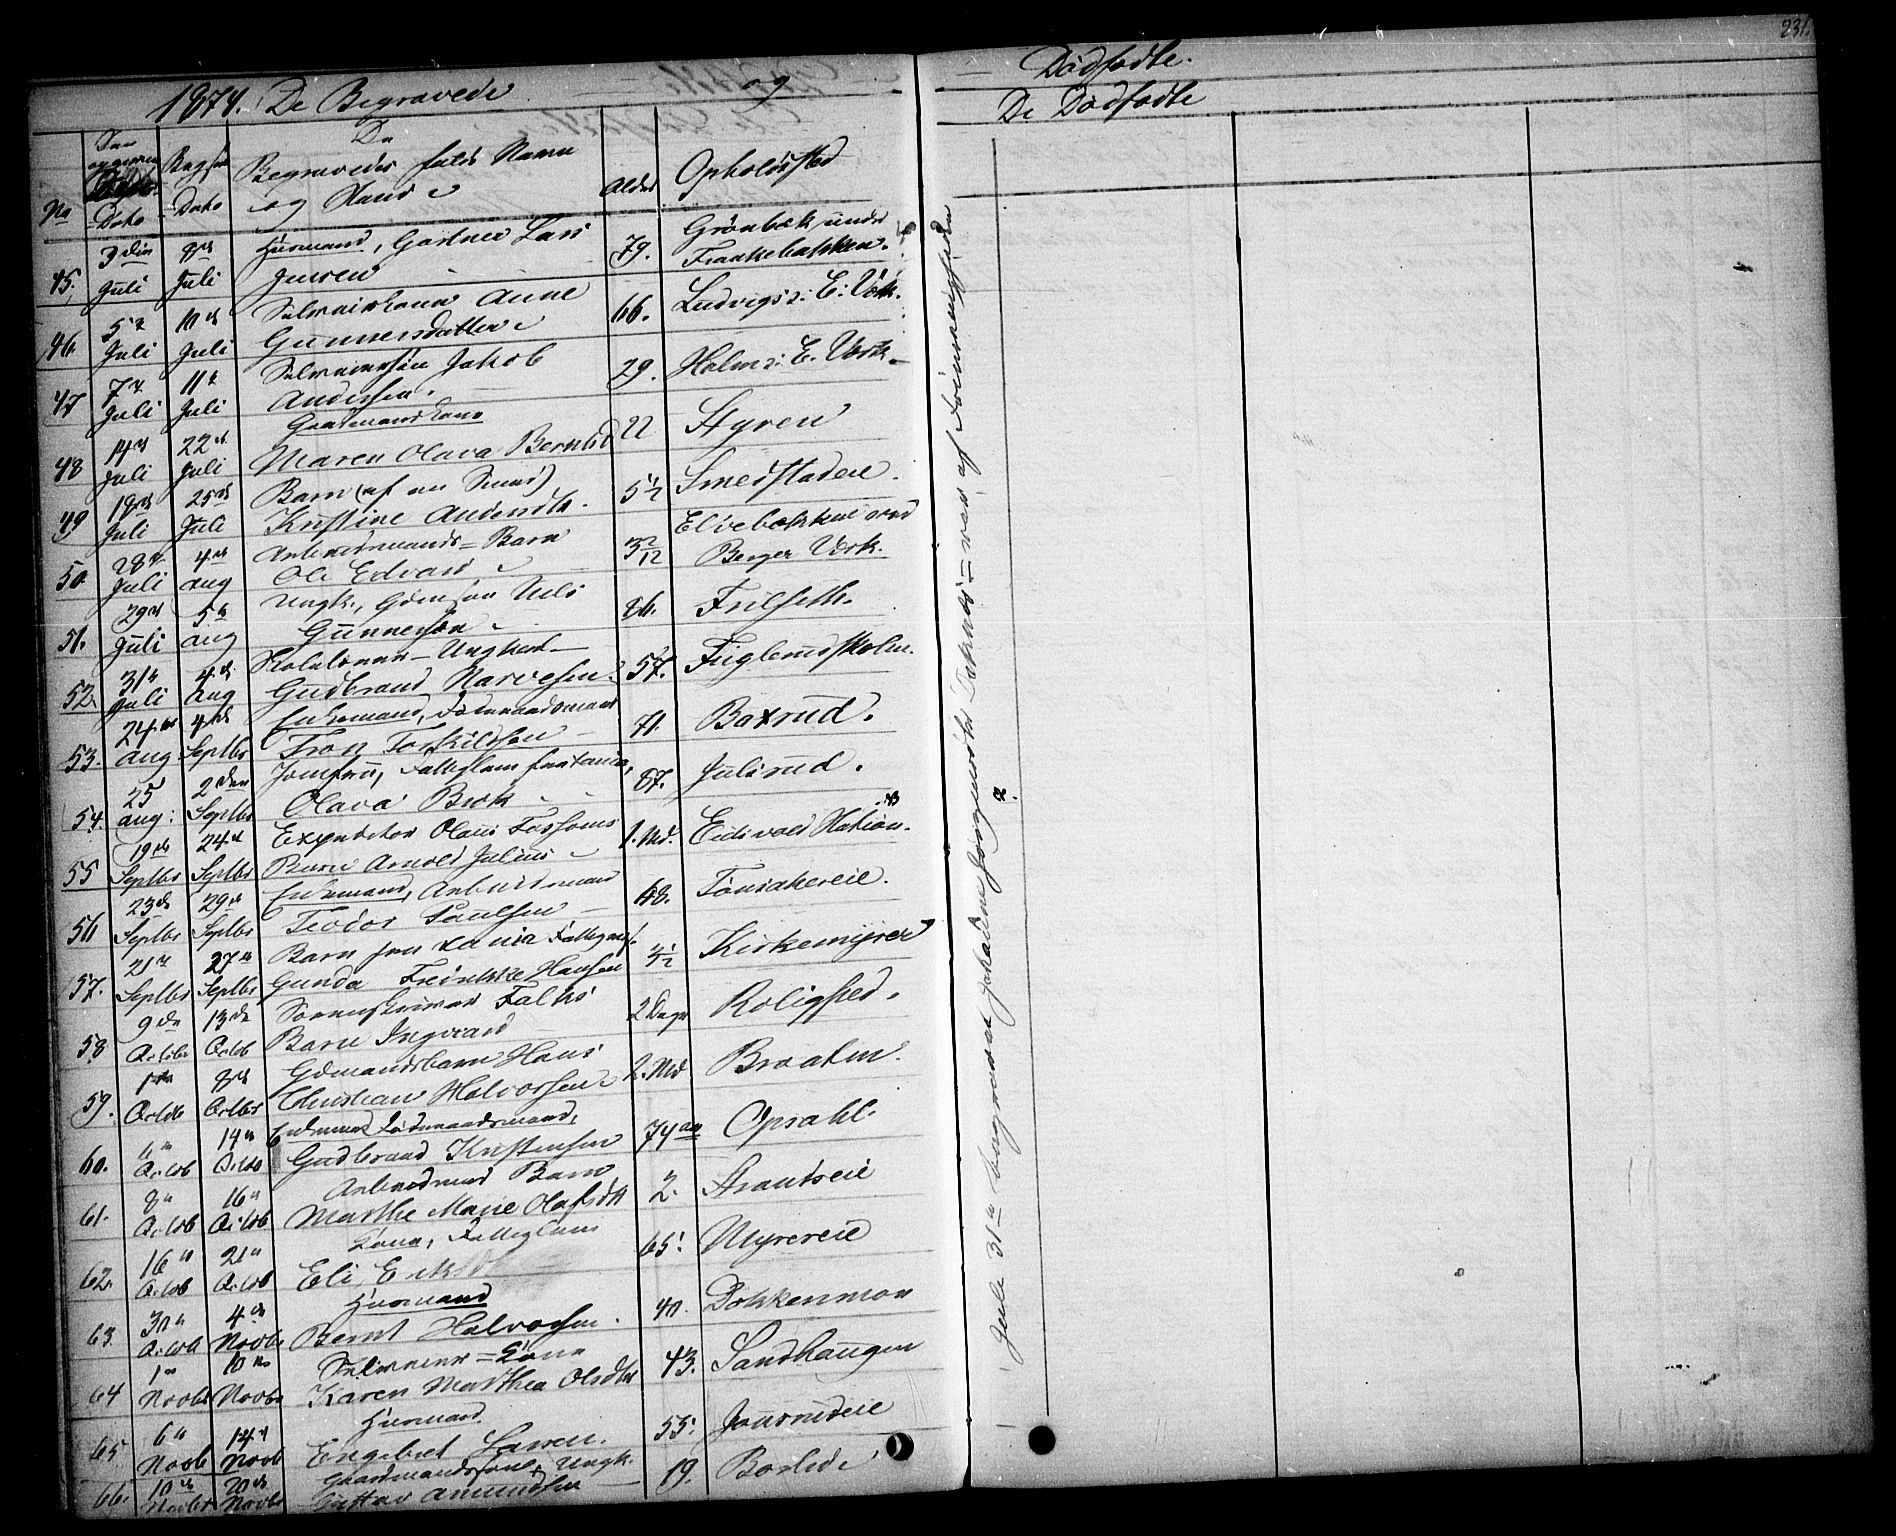 231.
1874. De Begravede og Dødfødte.
De Dødfødte
No
Dato
Begr
Dato
De
Begravedes fulde Navn
og Stand
Alder
Opholdssted
45. 3die Juli 8de Juli Huusmand, Gartner Lars
Jensen 79. Grönbæk under
Frankebakken.
46. 5te Juli 10de Juli Selveierkone Anne
Gunnersdatter 66. Ludvigs: E: Værk.
47 7de Juli 11te Juli Selveiersøn Jakob
Andersen. 29. Holm: E. Værk
48 14de Juli 22de Juli Gaardmandskone
Maren Olava Berntsd 22 Styren
49 19de Juli 25de Juli Barn (af en Smed)
Kristine Andersdtr. 5½ Smedstadeie.
50. 28de Juli 4de Aug Arbeidsmands=Barn
Ole Edvard Elvebakken ved
Berger Værk.
51. 29de Juli 5te Aug Ungk., Gdmsøn Nils
Gunnersen 26. Frilseth.
52. 31te Juli 4de Aug Ungkarl
Gudbrand Narvesen 57. Fuglemdsholm.
53. 24de Aug 4de Septbr Enkemand, Föderaadsmand
Tron Torkildsen 71. Baxrud.
54. 25 Aug: 2den Septbr Jomfru, Fattiglem
Olava Birk 87. Julsrud.
55 19de Septbr 24de Septbr Expeditør Olaus Fossums
Barn Arnold Julius 1. Md. Eidsvold Station.
56 23de Septbr 29de Septbr Enkemand, Arbeidsmand
Teodor Paulsen 48. Tönsakereie.
57. 21de Septbr 27de Septbr Barn
Gunda Fredrikke Hansen ½ Kirkemyrer
58 9de Octbr 13de Octb Sorenskriver Falks
Barn Ingvard 2 Dage Rolighed.
59. 1ste Octb 8de Octbr Gdmandsbarn Hans
Christian Halvorsen 2. Md Braaten.
60. 6te Octob 14de Octob Enkemand Föderaadsmand,
Gudbrand Kristensen 74 aar Opsahl.
61. 8de Octob 16de Octob Arbeidsmd Barn
Marthe Marie Olafsdtr 2. Strandseie
62. 16de Octob 21de Octob Kone, Fattiglem
Eli Eriksdtr 65. Myrereie
63. 30de Octob 4de Novbr Huusmand
Bernt Halvorsen. 40. Dokkenmoen
64 1ste Novbr 10de Novbr Selveier=Kone
Karen Marthea Olsdtr 43. Sandhaugen
65 6te Novb 14de Novb Huusmand
Engebret Larsen. 55. Jönsrudeie
66. 10de Novbr 20de Novbr Gaardmandssøn, Ungk.
Gustav Amundsen 19. Borlid
Juli 31te begravet